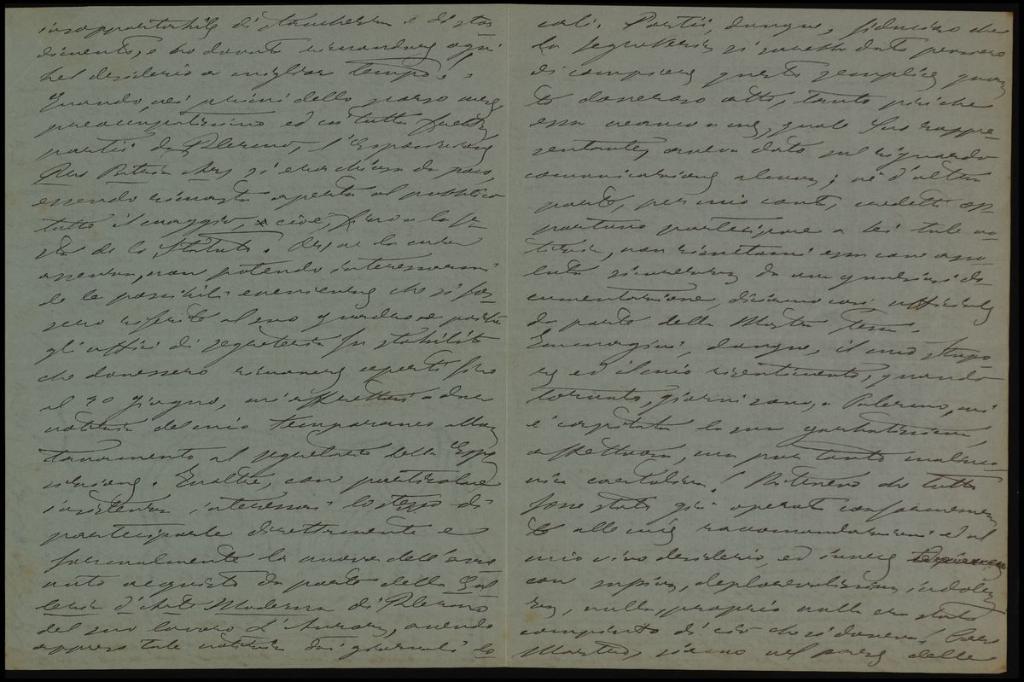 insopportabile di stanchezza e di stor
dimento, e ho dovuto rimandare ogni
bel desiderio a miglior tempo.
Quando, nei primi dello scorso mese,
ed in tutta fretta,
partii da Palermo, l'Esposizione
era chiusa da poco,
essendo rimasta aperta al pubblico
tutto il maggio, e cioè, fino a la fe
sta de lo Statuto. De la mia
assenza, non potendo interessarmi
de le possibili evenienze che si fos
sero riferite al suo quadro e poiché
gli uffici di segreteria fu stabilito
che dovessero rimanere aperti fino
al 30 giugno, mi affrettai a dar
notizia del mio temporaneo allon
tanamento al segretario della Espo
sizione. Inoltre, con particolare
insistenza interessai lo stesso di
parteciparle direttamente e
formalmente la nuova dell'avve
nuto acquisto da parte della Gal
leria d'Arte Moderna di Palermo
del suo lavoro L'Aurora, avendo
appreso tale notizia dai giornali lo
cali. Partii, dunque, fiducioso che
la segreteria si sarebbe data pensiero
di compiere questo semplice quan
to doveroso atto, tanto più che
essa neanco a me, quale suo rappre
sentante, aveva dato sul riguardo
comunicazione alcuna; né d'altra
parte, per mio conto, credetti op
portuno partecipare a Lei tale no
tizia, non
da una qualsiasi do
cumentazione, diciamo così, ufficiale
da parte della Mostra stessa.
Immagini, dunque, il mio stupo
re ed il mio risentimento, quando
tornato, giorni sono, a Palermo, mi
è capitata la sua garbatissima,
affettuosa, ma pur tanto malinco
nica cartolina! Ritenevo che tutto
fosse stato già operato conformemen
te alle mie raccomandazioni ed al
mio vivo desiderio, ed invece
con mia deplorevolissima indolen
za, nulla, proprio nulla era stato
compiuto di ciò che si doveva! Caro
Maestro, siamo nel paese delle